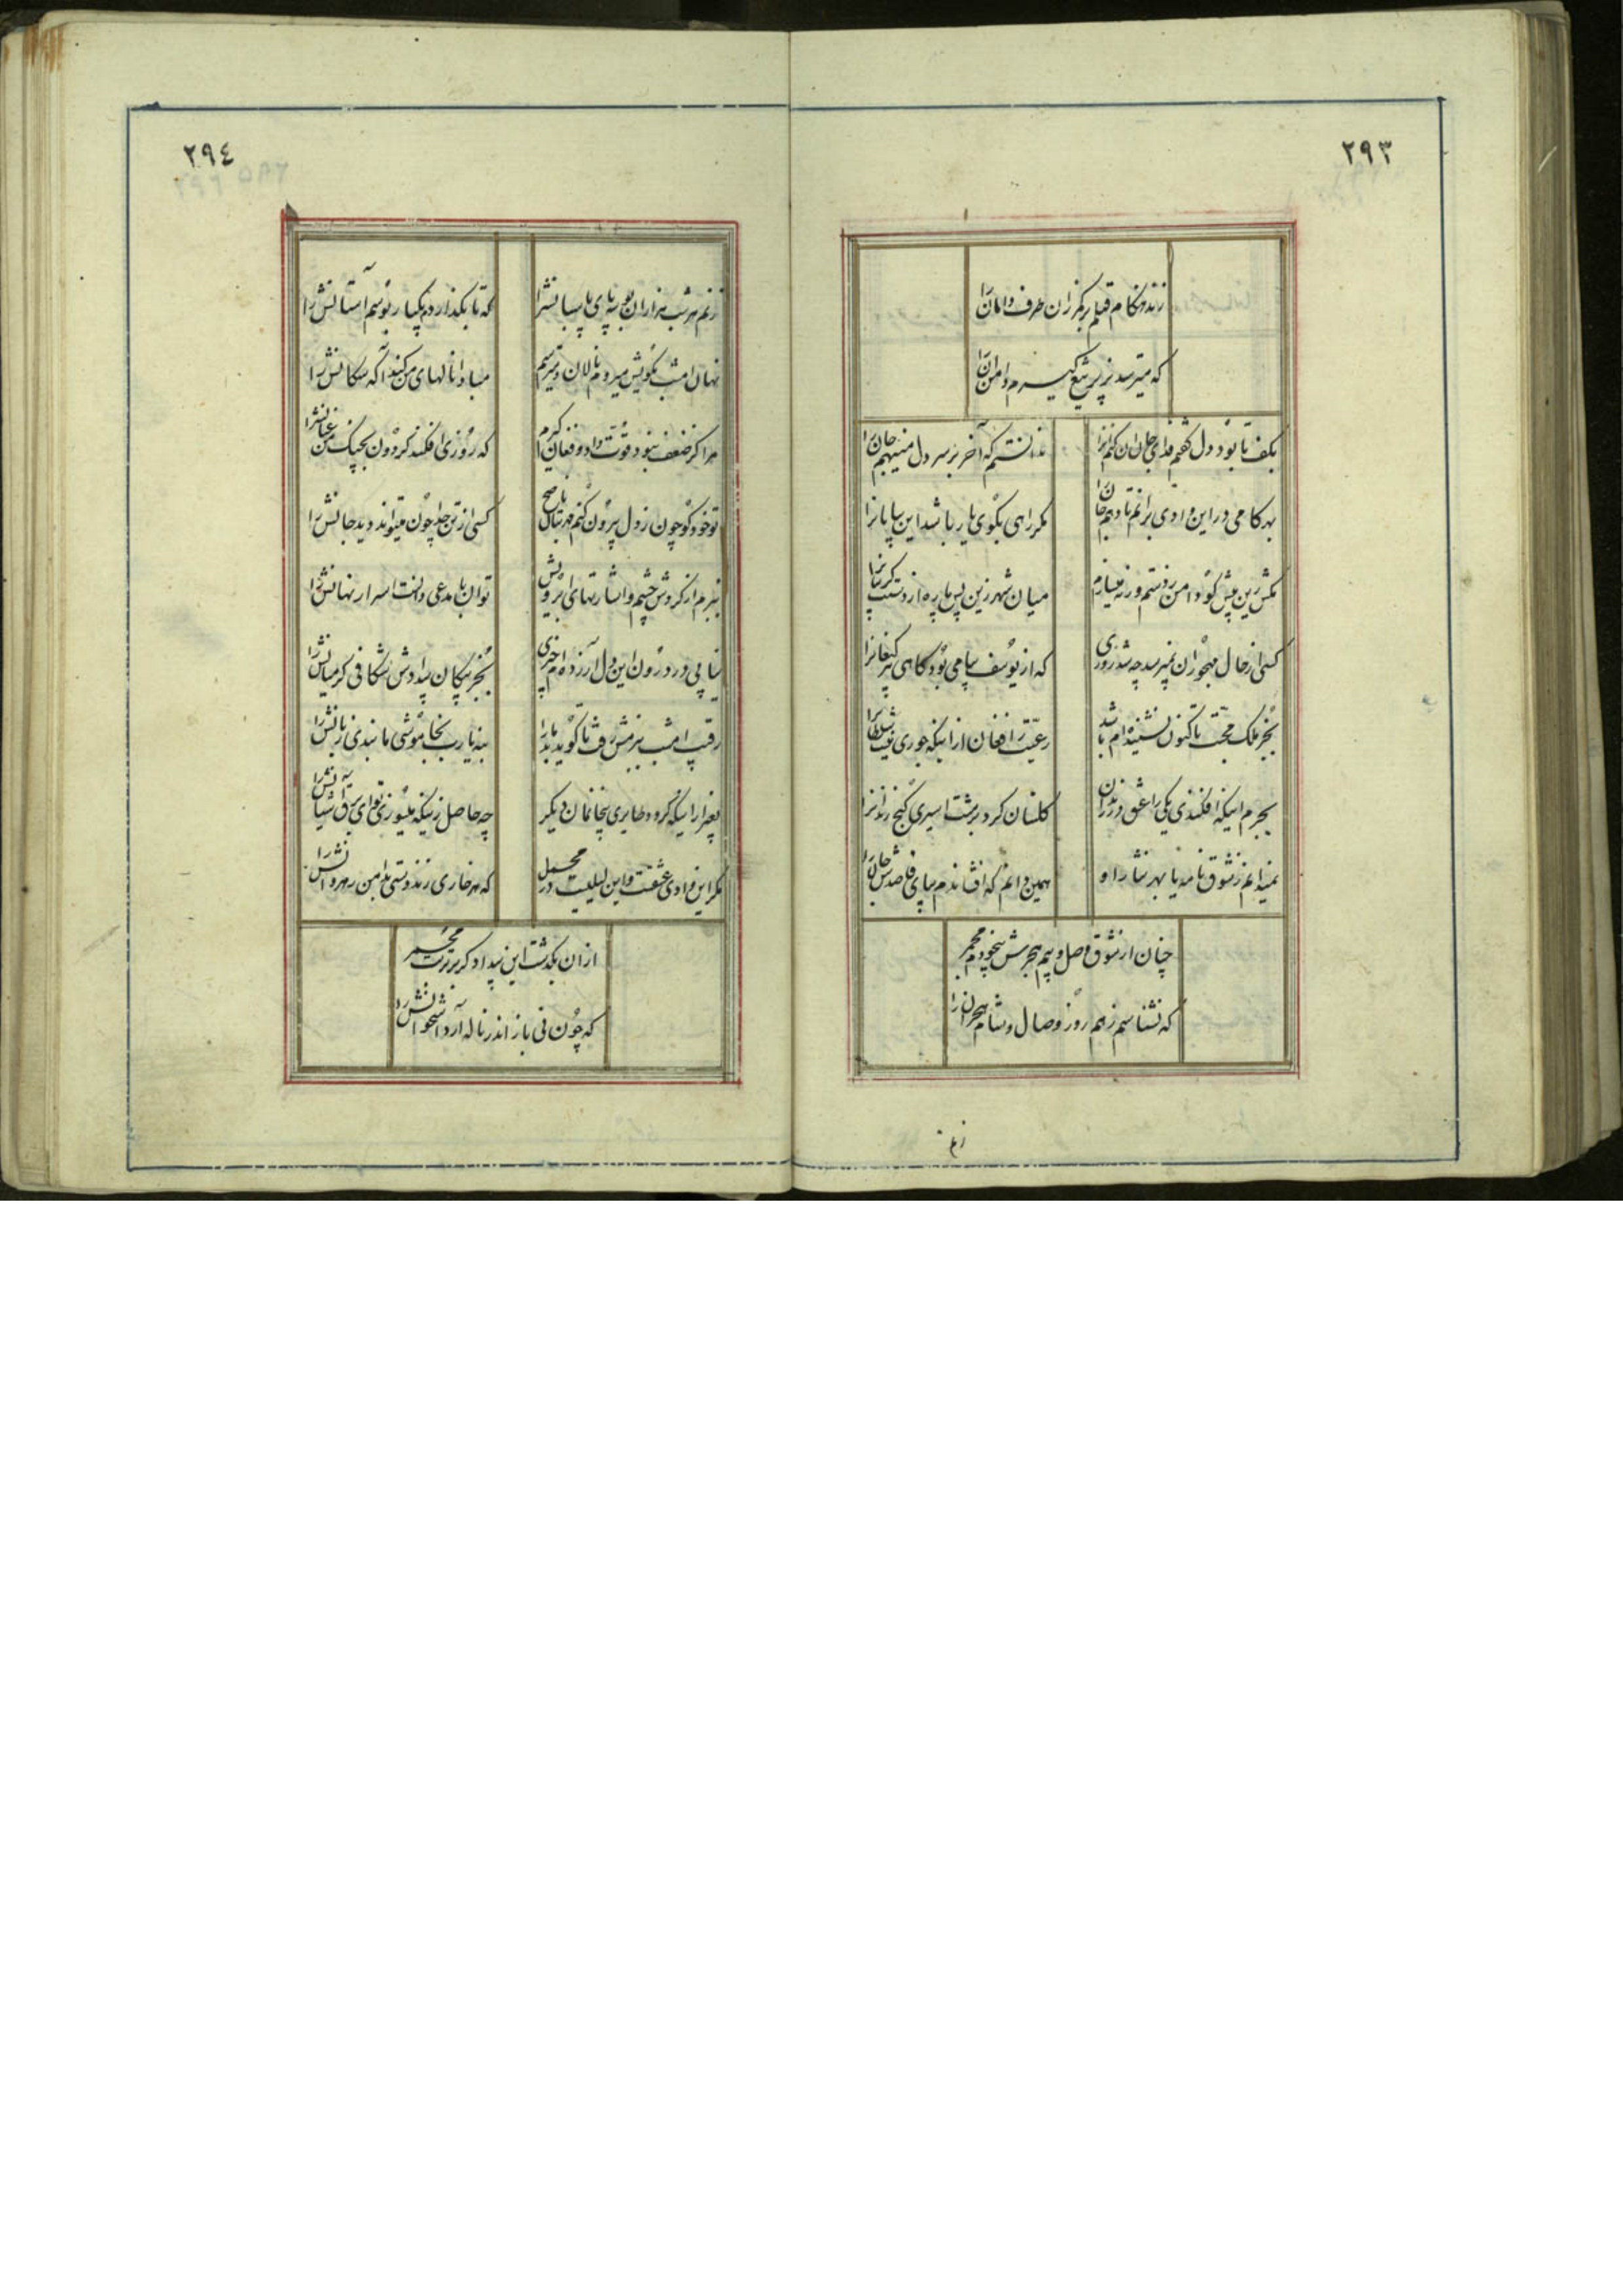 ۲۹۳
زند هنگام قتلم بر کمر زان طرف دامان را
که میترسد بزیر تیغ گیرم دامن آن را
بکف تا بود دل گفتم فدای جان جانان کنم آنرا
ندانستم که آخر بر سر دل مینهم جان را
بهر کامی در این وادی برانم تا دهم جان را
مگر راهی بکوی یار باشد این بیابانرا
مکش زین پیش گو دامن ز دستم ورنه میسازم
میان شهر زین پس پاره از دستت گریبانرا
کسی از حال مهجوران نمیپرسد چه شد روزی
که از یوسف پیامی بود گاهی پیر کنعانرا
بجز ملک محبت تا کنون نشنیده ام باشد
رعیت را فغان از اینکه جوری نیست سلطانرا
بجرم اینکه افکندی یکی را عشق در زندان
گلستان کرد بر پشت اسیری کنج زندانرا
نمیدانم ز شوق نامه یا بهر نثار او
همین دانم که افشاندم بپای قاصدش جان را
چنان از شوق وصل و بیم هجرش بیخودم مجمر
که نشناسم ز هم روز وصال و شام هجران را
زنم
۲۹٤
زنم هر شب هزاران بوسه بر پای پاسبانش را
که تا بگذاردم یکبار بوسم آستانش را
نهان امشب بکویش میروم نالان و میترسم
مبادا نالهای من کند آگه سگانش را
مرا گر ضعف نبود قوت داد و فغان گیرم
که روزی افکند گردون بچنگ من عنانش را
تو خود گو چون ز دل بیرون کنم مهر بتان ناصح
کسی از تن جدا چون میتواند دید جانش را
ببزم از گردش چشم و اشارتهای ابرویش
توان با مدعی دانست اسرار نهانش را
نیابی در درون این دل آزرده ام چیزی
بجز پیکان بیدادش شکافی گر میانش را
رقیب امشب ببزمش رفت تا گوید بد ما را
به یا رب بخاموشی ما بندی زبانش را
بغیر از اینکه گردد طایری بیخانمان دیگر
چه حاصل زینکه میسوزی تو ای برق آشیانش را
مگر این وادی عشقست و این لیلیست در محمل
که هر خاری زند دستی بدامن رهروانش را
از آن بگذشت این بیداد کز بر تربت مجمر
که چون نی باز اندر ناله آرد استخوانش را